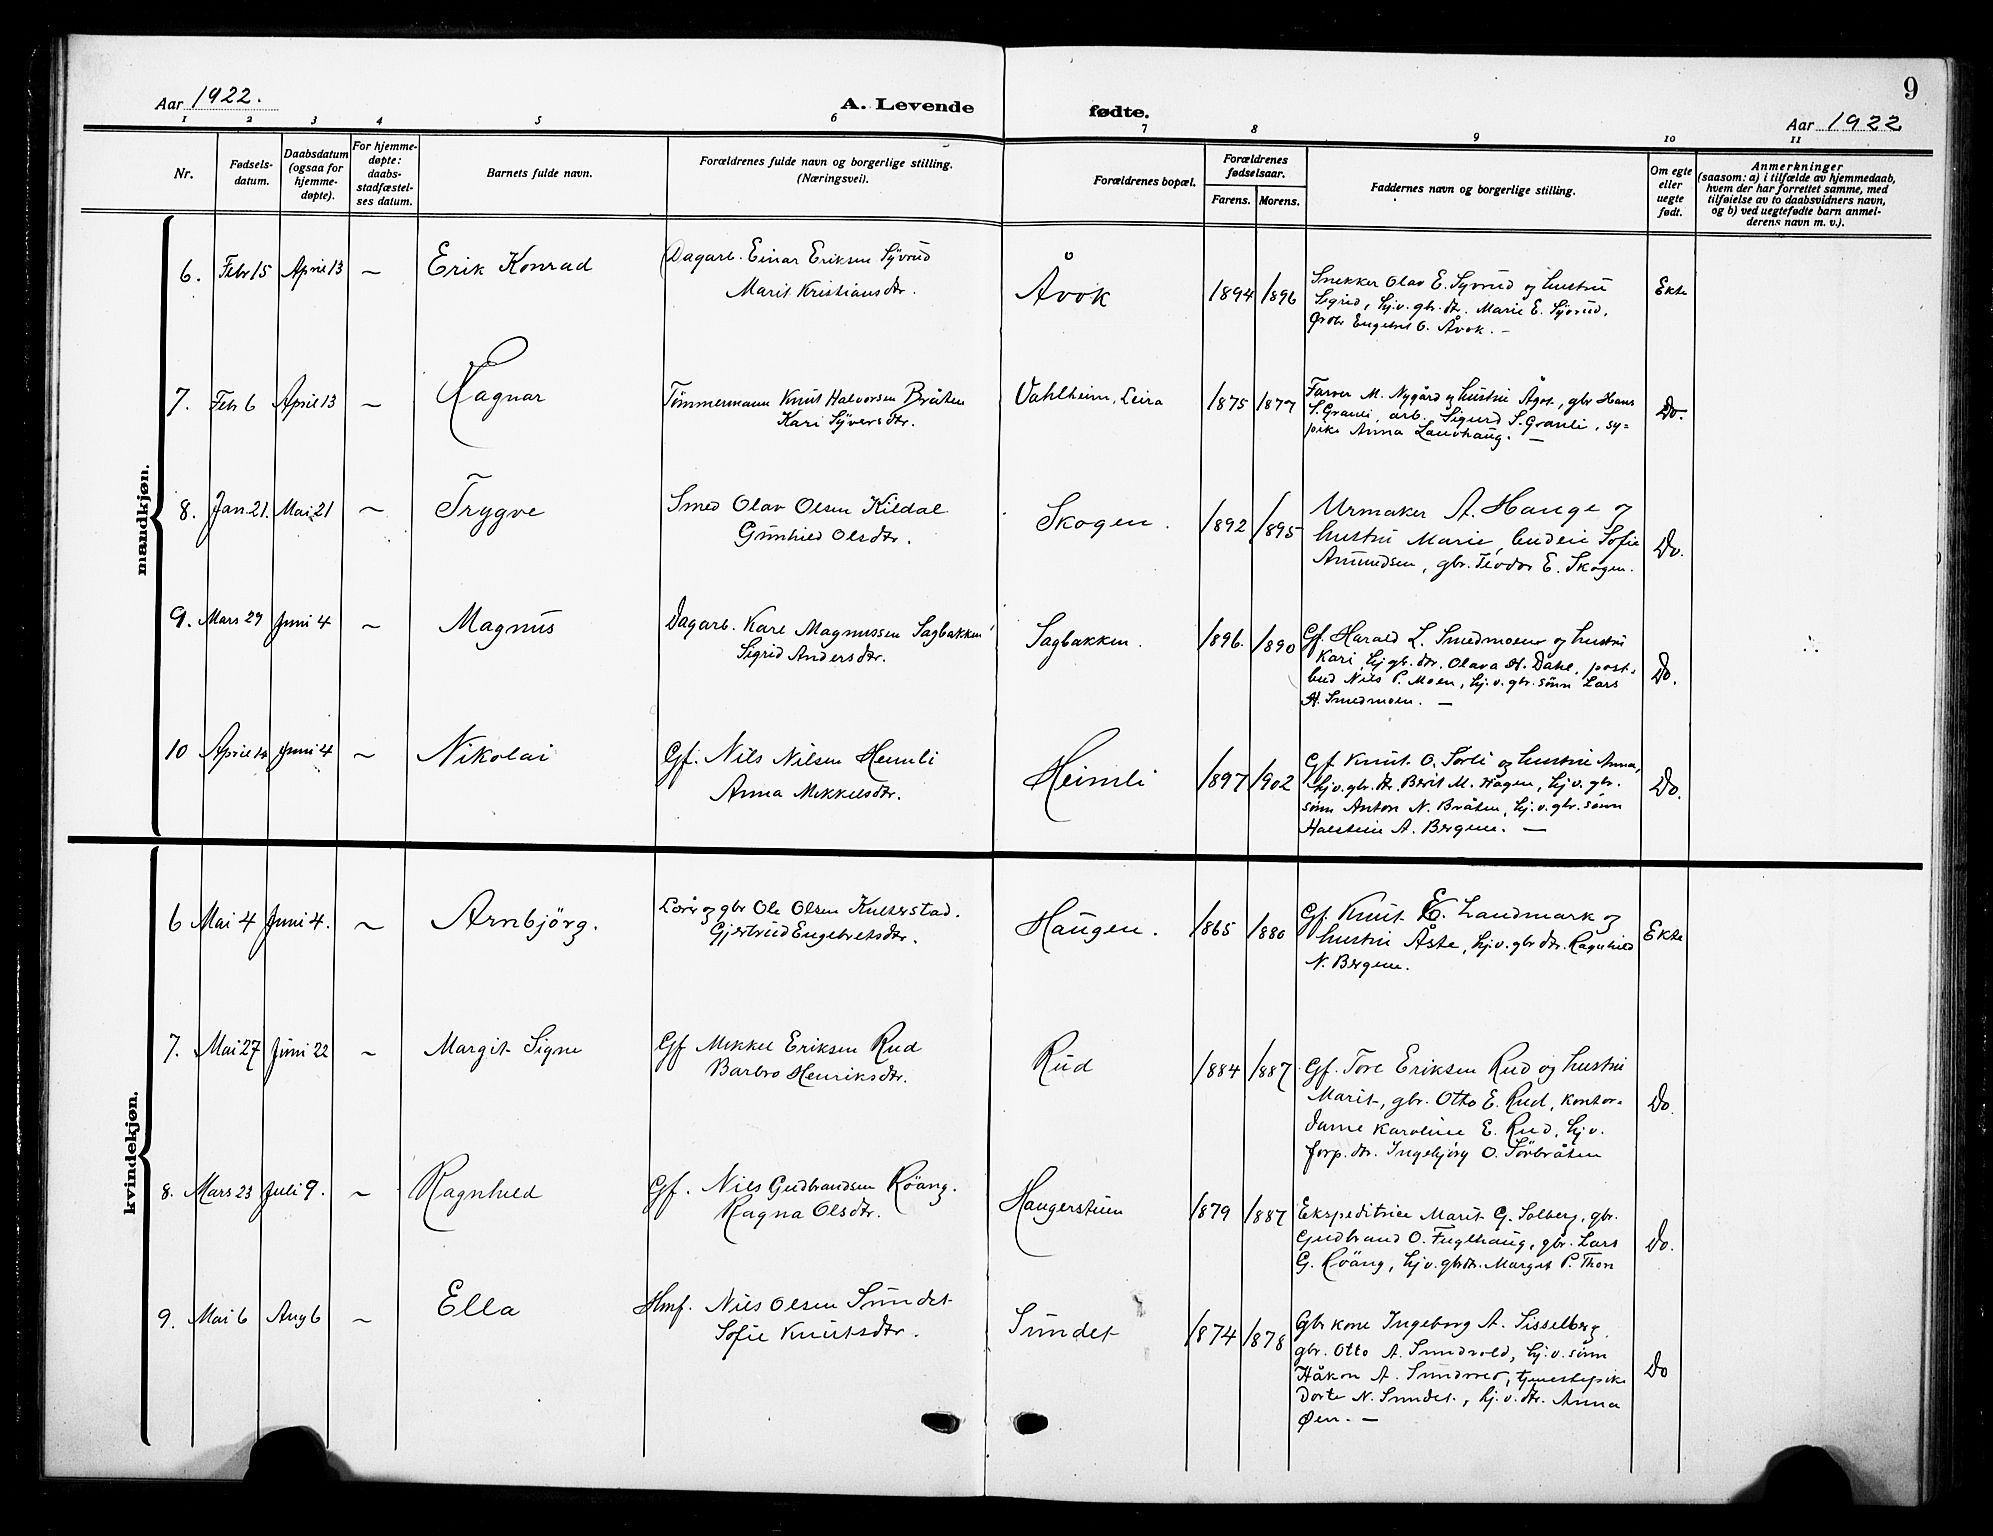 9
Aar 1922.
A. Levende fødte.
Aar 1922
1 2 3 4 5 6 7 8 9 10 11
Nr.
Fødsels-
datum.
Daabsdatum
(ogsaa for
hjemme-
døpte).
For hjemme-
døpte:
daabs-
stadfæstel-
ses datum.
Barnets fulde navn.
Forældrenes fulde navn og borgerlige stilling.
(Næringsvei).
Forældrenes bopæl.
Forældrenes
fødselsaar.
Farens. Morens.
Faddernes navn og borgerlige stilling.
Om egte
eller
uegte
født.
Anmerkninger
(saasom: a) i tilfælde av hjemmedaab,
hvem der har forrettet samme, med
tilføielse av to daabsvidners navn,
og b) ved uegtefødte barn anmel-
derens navn m. v.).
mandkjøn.
6. Febr 15 April 13 ~ Erik Konrad
Dagarb. Einar Eriksen Syvrud
Marit Kristiansdtr.
Åvok
1894 1896
Snekker Olav E. Syvrud og hustru
Sigrid, hj.v. gbr. dtr. Marie E. Syvrud,
Engebret O. Åvok. –
Ekte
7. Febr 6 April 13 ~ Ragnar
Tømmermann Knut Halvorsen Bråten
Kari Syversdtr.
Vahlheim, Leira
1875 1877
Farver M. Nygård og hustru Ågot, gbr Hans
S. Granli, arb. Sigurd S. Granli, sy=
pike Anna Lauvhaug. –
Do.
8. Jan 21. Mai 21 ~ Trygve
Smed Olav Olsen Kildal
Gunhild Olsdtr.
Skogen.
1892 1895
Urmaker A. Hauge og
hustru Marie, budeie Sofie
Amundsen, gbr. Teodor E. Skogen.
Do.
9. Mars 29 Juni 4 ~ Magnus
Dagarb. Karl Magnussen Sagbakken
Sigrid Andersdtr.
Sagbakken.
1896. 1890
Gf. Harald L. Smedmoen og hustru
Kari, hj gbr. dtr. Olava H. Dahl, post-
bud Nils P. Moen, hj.v. gbr. sønn Lars
H. Smedmoen. –
Do.
10 April Juni 4 ~ Nikolai
Gf. Nils Nilsen Heimli
Anna Mikkelsdtr.
Heimli
1897 1902
Gf. Knut O. Sørli og hustru Anna,
hj.v. gbr. dtr. Berit M. Hagen, hj.v. gbr.
sønn Anton N. Bråten, hj.v. gbr. sønn
Halstein A. Bergene. –
Do.
kvindekjøn.
6 Mai 4 Juni 4. ~ Arnbjörg.
Lærer og gbr Ole Olsen Kulterstad.
Gjertrud Engebretsdtr.
Haugen.
1865 1880
Gf. Knut E. Landmark og
hustru Åste, hj.v. gbr dtr. Ragnhild
N. Bergene.
Ekte
7. Mai 27 Juni 22 ~ Margit Signe
Gf Mikkel Eriksen Rud
Barbro Henriksdtr.
Rud
1884 1887
Gf. Tore Eriksen Rud og hustru
Marit, gbr. Otto E. Rud, kontor-
dame Karoline E. Rud, hj.v.
forp. dtr. Ingebjörg O. Sörbråten
Do.
8. Mars 23 Juli 9. ~ Ragnhild
Gf. Nils Gudbrandsen Röang.
Ragna Olsdtr.
Haugerstuen
1879 1887
Ekspeditrice Marit G. Solberg, gbr.
Gudbrand O. Fuglhaug, gbr. Lars
G. Röang, hj.v. gbrdtr. Margit P. Thon
Do.
9. Mai 6 Aug 6 ~ Ella
Hmf. Nils Olsen Sundet
Sofie Knutsdtr.
Sundet
1874 1878
Gbr kone Ingeborg A. Sisselberg,
gbr. Otto A. Sundvold, hj.v. sønn
Håkon A. Sundvold, tjenestepike
Dorte N. Sundet, hj.v. dtr. Anna
Øen. –
Do